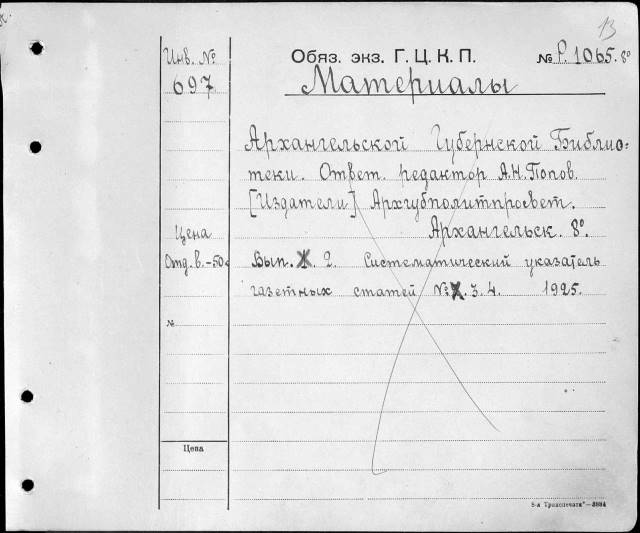 13
Инв. №
697
Обяз. экз. Г. Ц. К. П.
№ Р. 1065. 8º
Материалы
Архангельской Губернской Библио-
теки. Ответ. редактор А.Н. Попов.
[Издатели] Архгубполитпросвет.
Архангельск. 8º.
Цена
Отд. в. - 50к
Вып. 2. Систематический указатель
газетных статей № 3. 4. 1925.
№
Цена
5-я Транспечати"—3884